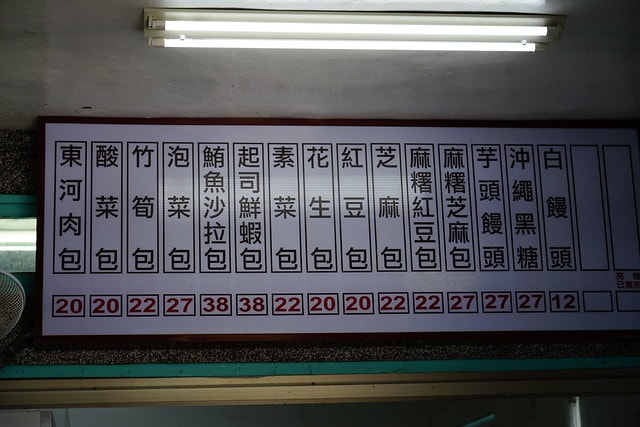 東河肉包
酸菜包
竹筍包
泡菜包
鮪魚沙拉包
起司鮮蝦包
素菜包
花生包
紅豆包
芝麻包
麻糬紅豆包
麻糬芝麻包
芋頭饅頭
沖繩黑糖
白饅頭
20 20 22 27 38 38 22 20 20 22 22 27 27 27 12